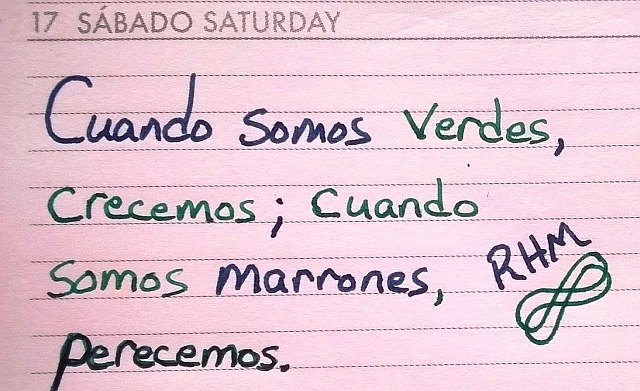 17 SÁBADO SATURDAY
Cuando somos verdes,
Crecemos; Cuando
somos marrones,
perecemos.
RHM